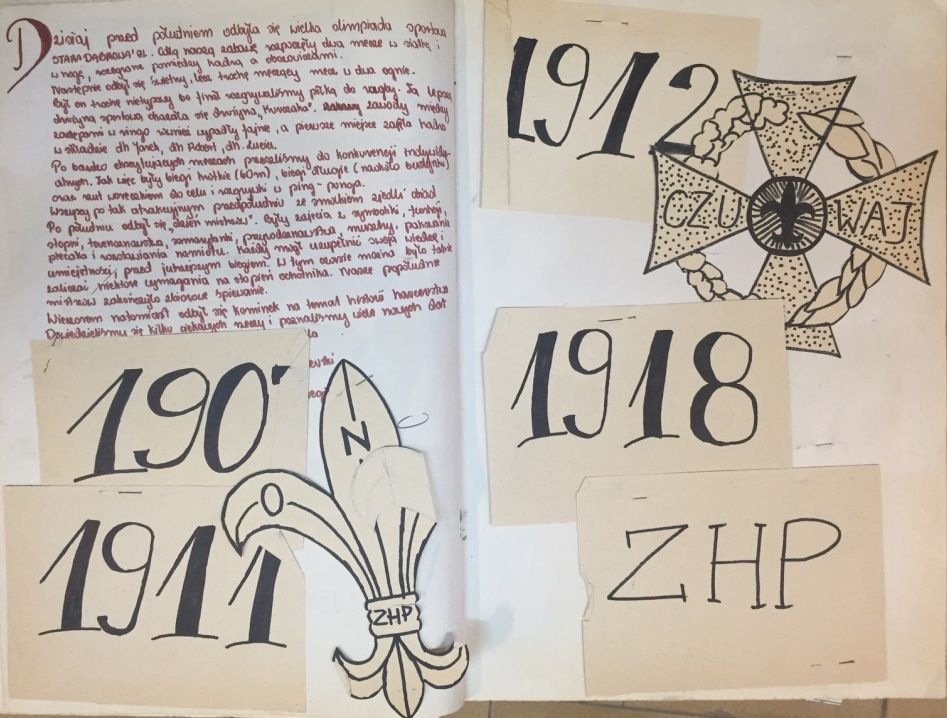 Dzisiaj przed południem odbyła się wielka olimpiada sportowa
STARA DĄBROWA'92. Całą naszą zabawę rozpoczęły dwa mecze w siatkę i
w nogę, rozegrane pomiędzy kadrą a obozowiczami.
Następnie odbył się świetny, lecz trochę męczący mecz w dwa ognie.
Był on trochę nietypowy bo finał rozgrywaliśmy piłką do rugby. Tą lepszą
drużyną sportową okazała się drużyna zawody między
zastępami w ringo również wypadły fajnie, a pierwsze miejsce zajęła kadra
w składzie dh Jarek, dh Robert, dh Łucja.
Po bardzo ekscytujących meczach przeszliśmy do konkurencji indywidu-
alnych. Tak więc były biegi krótkie (60m), biegi długie (naokoło budynku)
oraz rzut woreczkiem do celu i rozgrywki w ping-ponga.
Wszyscy po tak atrakcyjnym przedpołudniu ze smakiem zjedli obiad.
Po południu odbył się „dzień mistrzów". Były zajęcia z symboliki, funkcji,
stopni, terenoznawstwa, samarytanki, przyrodoznawstwa, musztry, pakowania
plecaka i rozstawiania namiotu. Każdy mógł uzupełnić swoją wiedzę i
umiejętności, przed jutrzejszym biegiem. W tym czasie można było także
zaliczać niektóre wymagania na stopień ochotnika. Nasze popołudnie
mistrzów zakończyło zbiorowe śpiewanie.
Wieczorem natomiast odbył się kominek na temat historii harcerstwa
Dowiedzieliśmy się kilku ciekawych rzeczy i poznaliśmy wiele nowych dat
ewski
190
1911
N
O
ZHP
1912
CZUWAJ
1918
ZHP